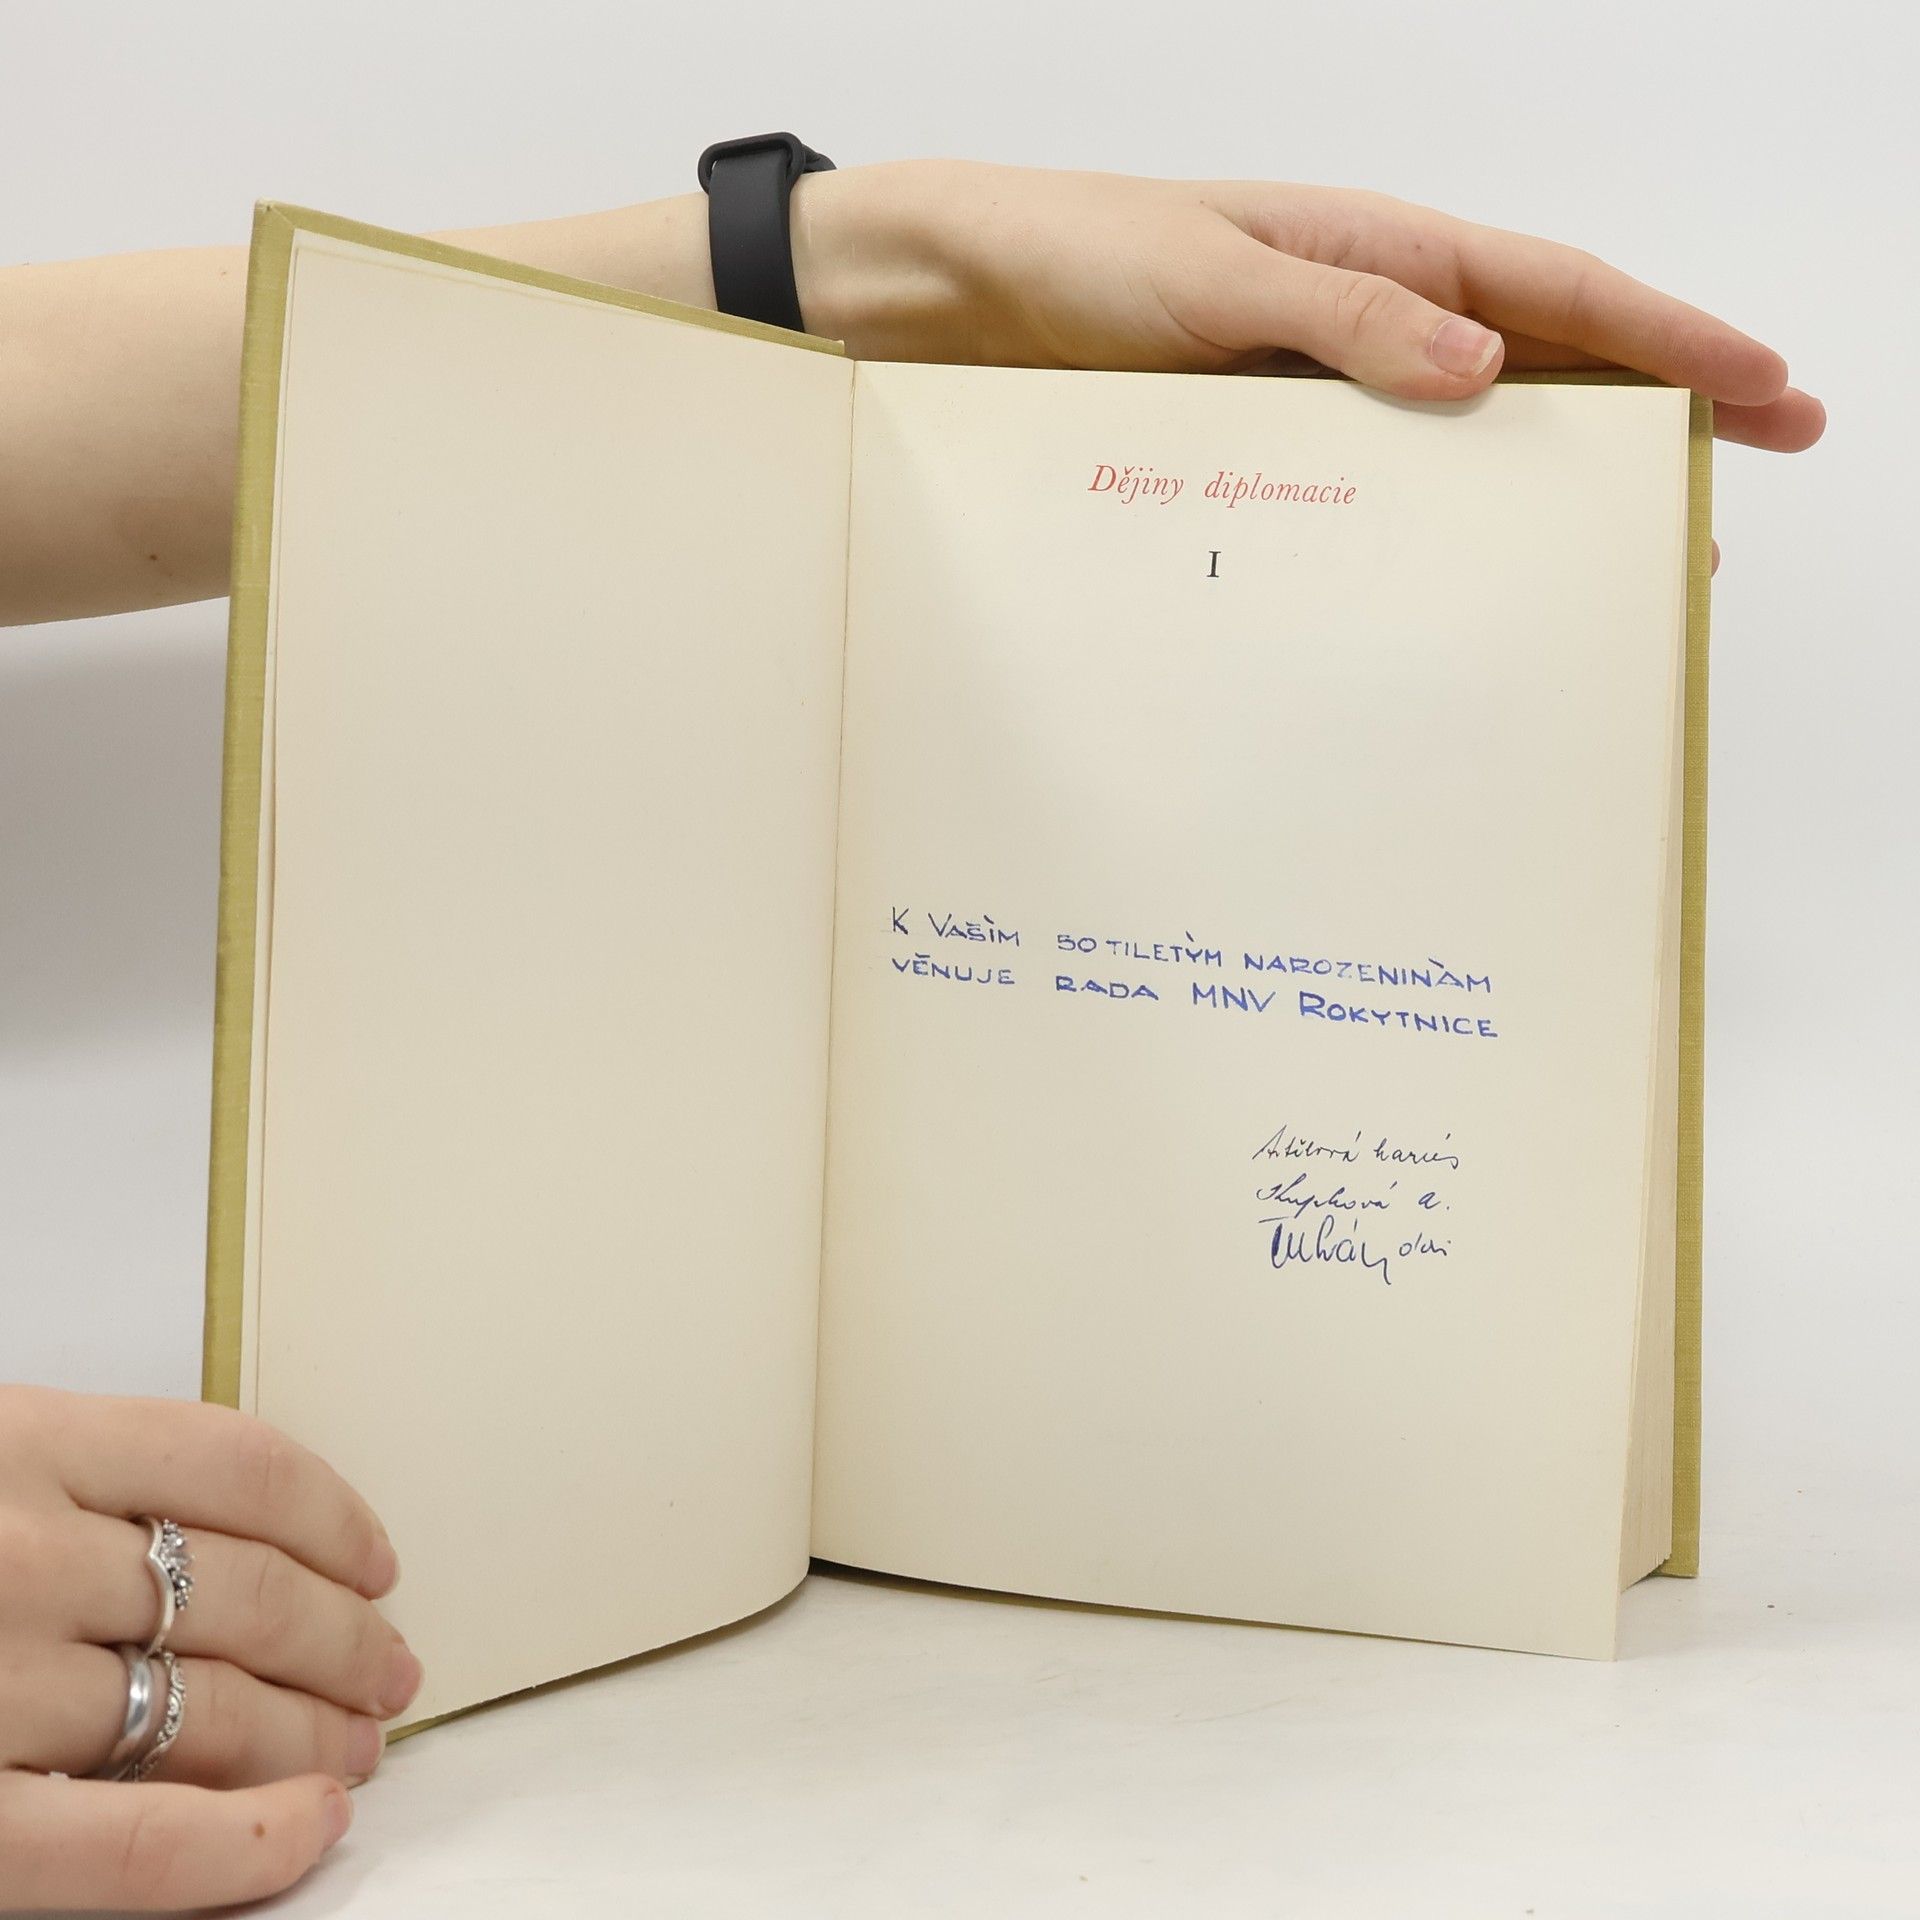 Dějiny diplomacie
I
K VAŠÌM 50TILETÝM NAROZENINÀM
VĚNUJE RADA MNV ROKYTNICE
Kupková a.